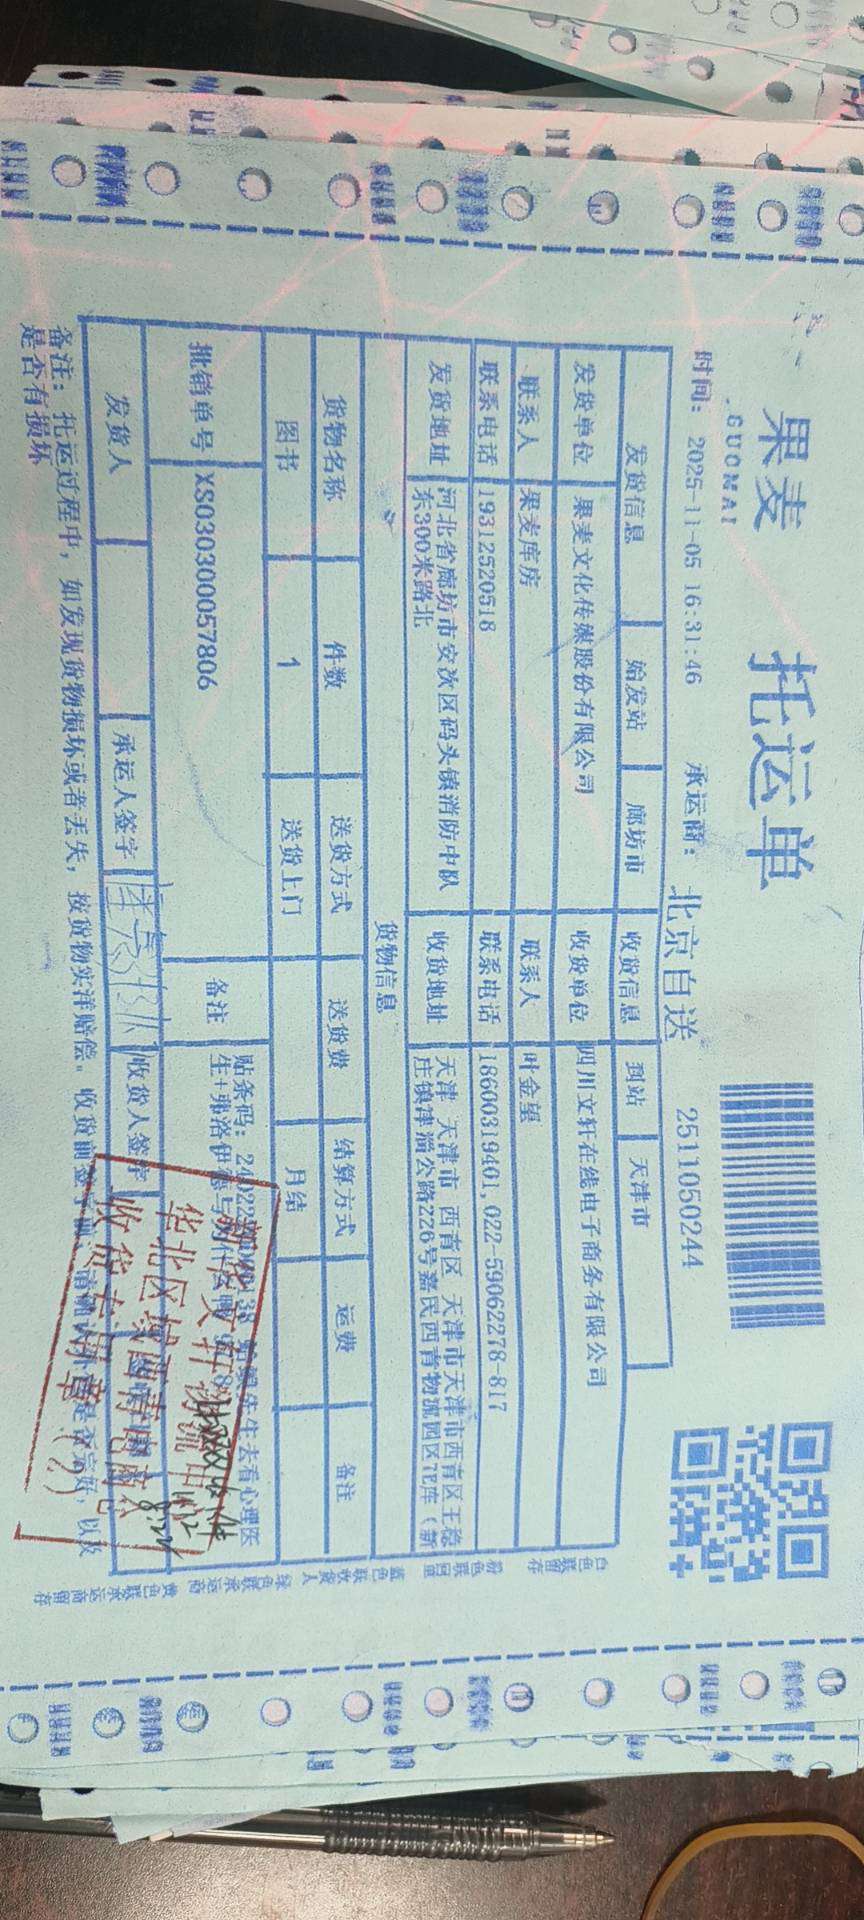 果麦
GUOMAI
托运单
时间：2025-11-05 16:31:46 承运商：北京自送 2511050244
发货信息 始发站 廊坊市 收货信息 到站 天津市
发货单位 果麦文化传媒股份有限公司 收货单位 四川文轩在线电子商务有限公司
联系人 果麦库房 联系人 叶金望
联系电话 19312520518 联系电话 18600319401,022-59062278-817
发货地址 河北省廊坊市安次区码头镇消防中队东300米路北 收货地址 天津 天津市 西青区 天津市天津市西青区王稳庄镇津淄公路226号嘉民西青物流园区7E库（新
货物信息
货物名称 件数 送货方式 送货费 结算方式 运费 备注
图书 1 送货上门 月结
批销单号 XS030300057806 备注 贴条码：
先生去看心理医
生+弗洛伊德与为什么鸭
发货人 承运人签字 收货人签字
备注：托运过程中，如发现货物损坏或者丢失，按货物实洋赔偿。收货前签字
是否完好，以及
是否有损坏
白色联留存
粉色联回单
蓝色联收货人
绿色联承运商
黄色联承运商留存
新华文轩物流中心
华北区域西青电商仓
收货专用章